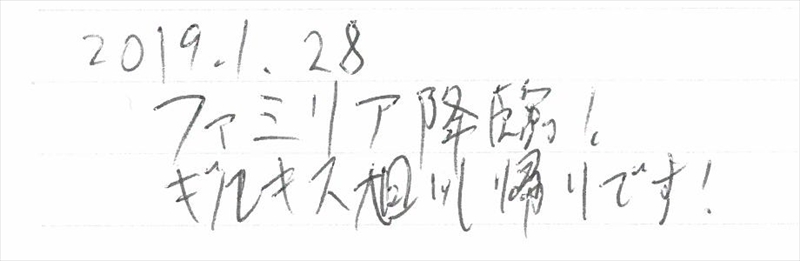 2019.1.28
ファミリア降臨!
ギルキス旭川帰りです!